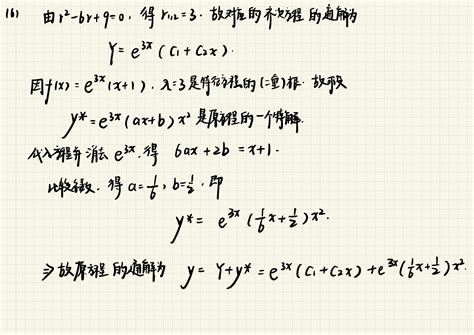 (6) 由r²-6r+9=0, 得 r₁,₂=3. 故对应的齐次方程的通解为
Y=e^{3x}(C₁+C₂x).
因f(x)=e^{3x}(x+1), λ=3是特征方程的(二重)根. 故可设
y*=e^{3x}(ax+b)x²是原方程的一个特解.
代入方程并消去e^{3x}, 得 6ax+2b=x+1.
比较系数. 得a=1/6, b=1/2, 即
y*=e^{3x}(1/6x+1/2)x².
⇒故原方程的通解为 y=Y+y*=e^{3x}(C₁+C₂x)+e^{3x}(1/6x+1/2)x².